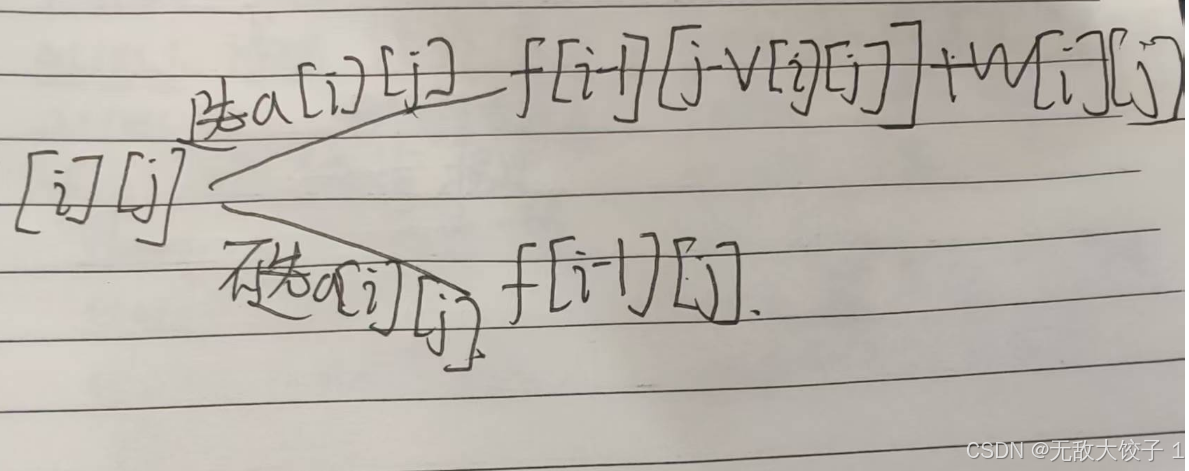 选a[i][j] f[i-1][j-v[i][j]]+w[i][j]
[i][j]
不选a[i][j] f[i-1][j].
CSDN @无敌大饺子 1